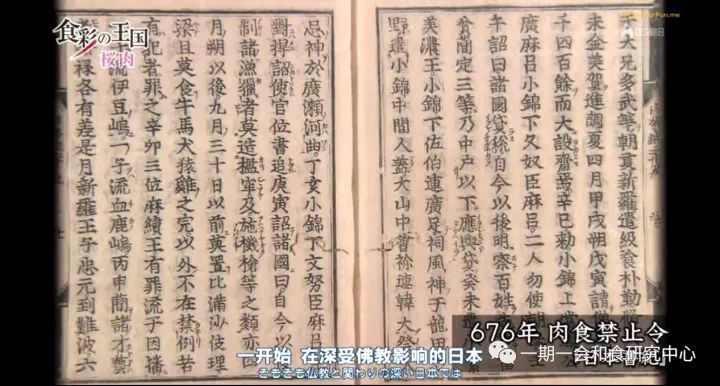 食彩の王国
桜肉
BS朝日
大兄多武等朝貢新羅遣級飡朴勤
未金美賀進調夏四月甲戌朔戊寅請
千四百餘而大設齋焉辛巳勅小錦上
廣麻呂小錦下久努臣麻呂二人勿使朝
午詔曰諸國貸税自今以後明察百姓
貧簡定三等乃中戸以下應與貸癸未遣
美濃王小錦下佐伯連廣足祠風神于龍田
野遣小錦中間人蓋大山中曾祢連韓犬祭
忌神於廣瀬河曲丁亥小錦下文努臣麻呂
對捍詔使官位盡追庚寅詔諸國曰自今以
制諸漁獵者莫造檻穽及施機槍等之類亦四
月朔以後九月三十日以前莫置比満沙伎理
梁且莫食牛馬犬猿雞之完以外不在禁例若
有犯者罪之辛卯三位麻續王有罪流于因播
流伊豆嶋一子流血鹿嶋丙申簡諸才藝
禄各有差是月新羅王子忠元到難波六
676年 肉食禁止令
日本書紀
一开始 在深受佛教影响的日本
そもそも仏教と関わりの深い日本では
一期一会和食研究中心